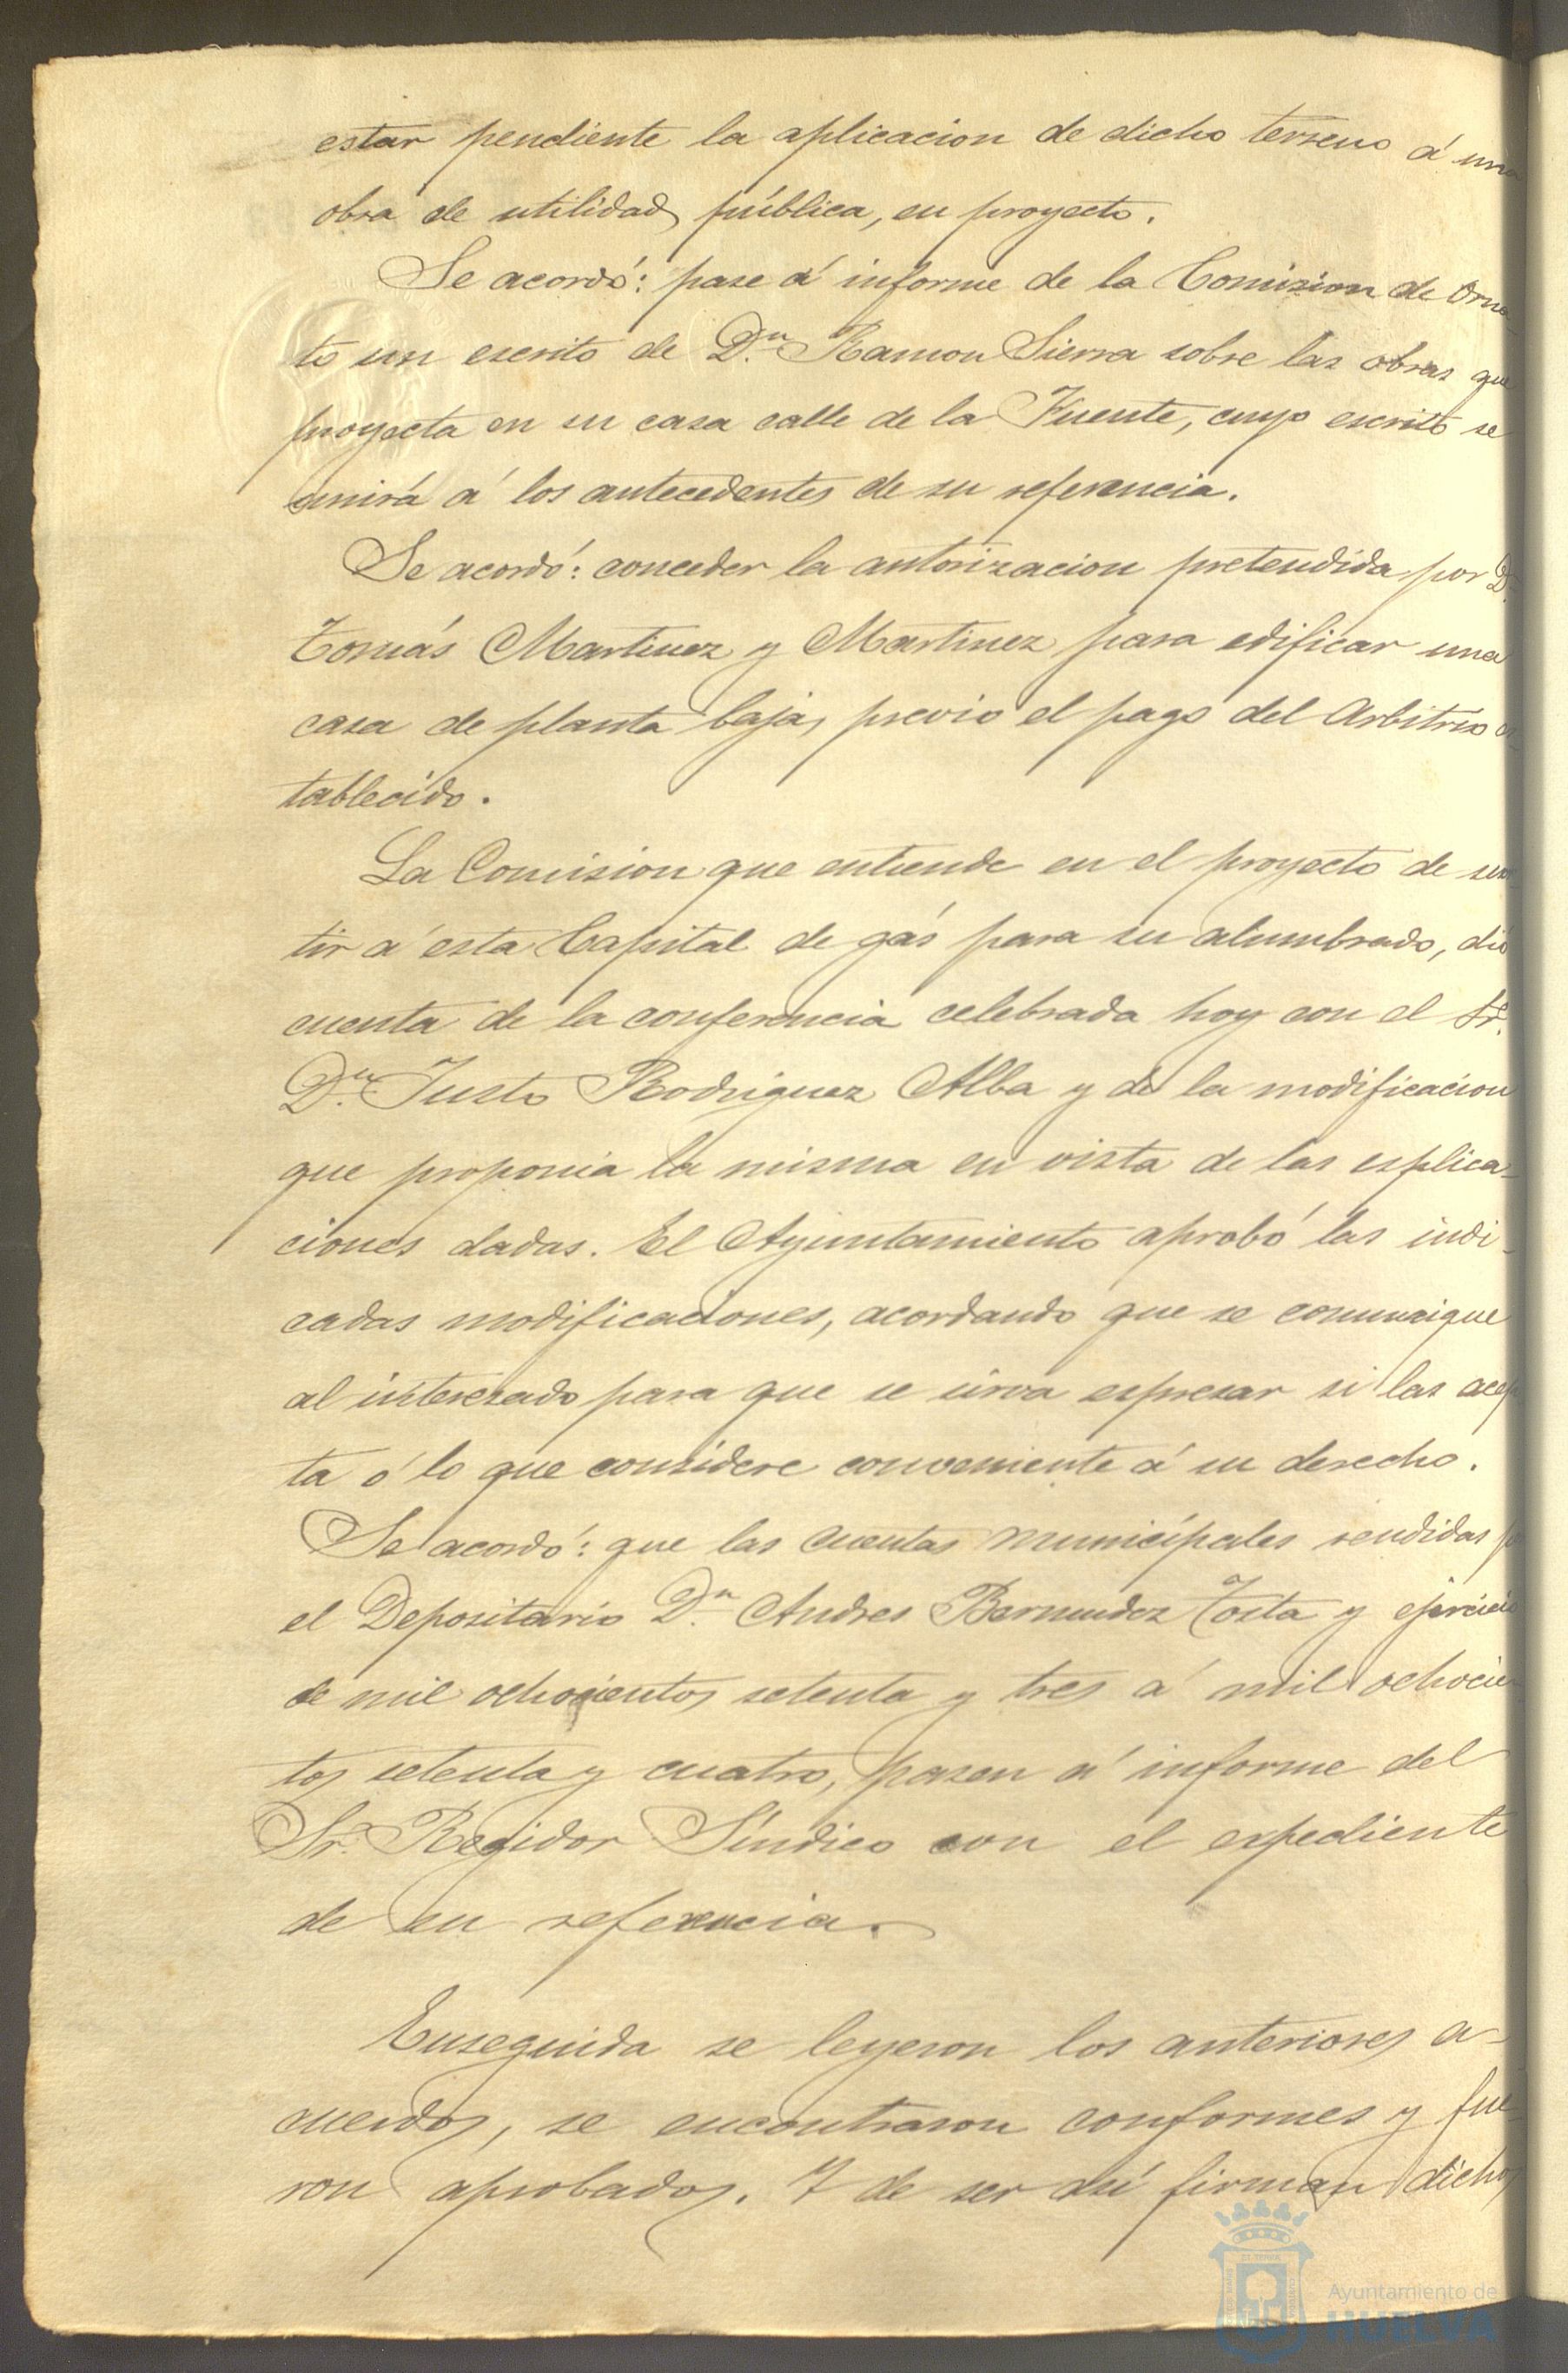 estar pendiente la aplicacion de dicho terreno á una
obra de utilidad pública, en proyecto.
Se acordó: pase á informe de la Comision de Orna
to un escrito de D.n Ramon Sierra sobre las obras que
proyecta en su casa calle de la Fuente, cuyo escrito se
unirá á los antecedentes de su referencia.
Se acordó: conceder la autorizacion pretendida por D.
Tomás Martinez y Martinez para edificar una
casa de planta baja, previo el pago del Arbitrio es
tablecido.
La Comision que entiende en el proyecto de sur
tir á esta Capital de gás para su alumbrado, dió
cuenta de la conferencia celebrada hoy con el Sr.
D.n Justo Rodriguez Alba y de la modificacion
que proponia la misma en vista de las esplica-
ciones dadas. El Ayuntamiento aprobó las indi-
cadas modificaciones, acordando que se comunique
al interesado para que se sirva espresar si las acep
ta ó lo que considere conveniente á su derecho.
Se acordó: que las cuentas municipales rendidas p
el Depositario D.n Andres Bermudez Tosta y ejercicio
de mil ochocientos setenta y tres á mil ochocien
tos setenta y cuatro, pasen á informe del
Sr. Regidor Síndico con el espediente
de su referencia.
Enseguida se leyeron los anteriores a-
cuerdos, se encontraron conformes y fue
ron aprobados. Y de ser así firman dichos
Ayuntamiento de
HUELVA